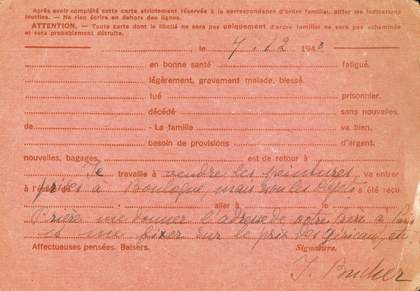 Après avoir complété cette carte strictement réservée à la correspondance d'ordre familial, biffer les indications
inutiles. — Ne rien écrire en dehors des lignes.
ATTENTION. — Toute carte dont le libellé ne sera pas uniquement d'ordre familial ne sera pas acheminée
et sera probablement détruite.
, le 7.12 1940
en bonne santé fatigué.
légèrement, gravement malade, blessé.
tué prisonnier.
décédé sans nouvelles.
de La famille va bien.
besoin de provisions d'argent.
nouvelles, bagages. est de retour à
Je travaille à vendre les peintures va entrer
à prises à Boulogne, mais sous les a été reçu
aller à le
Prière me donner l'adresse de votre à Paris
et me fixer sur le prix des Géricault, etc
Affectueuses pensées. Baisers. Signature.
J. Bucher